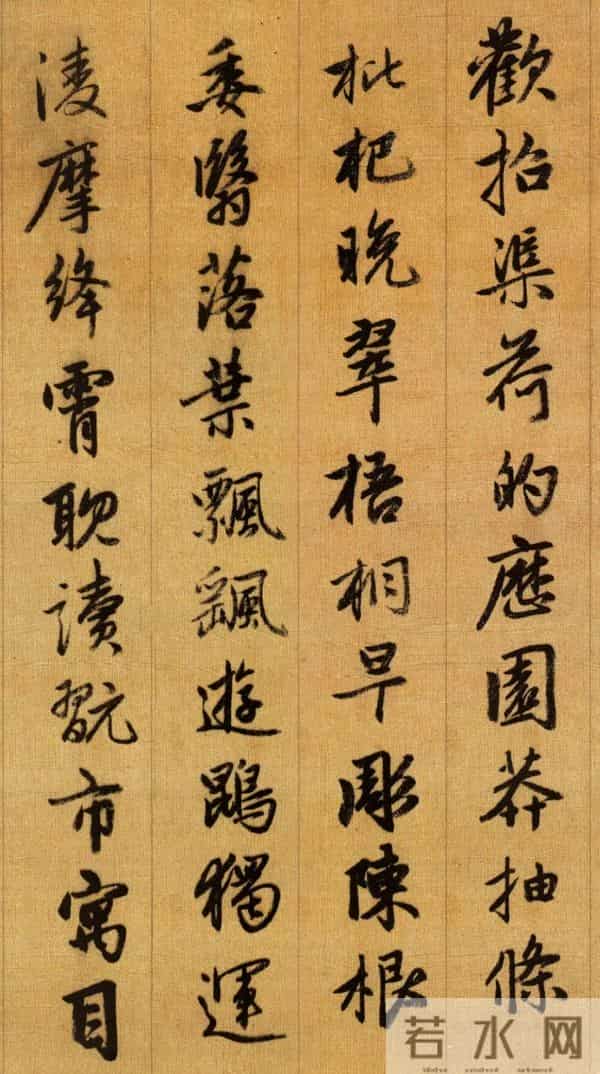 歡招渠荷的歷園莽抽條
枇杷晚翠梧桐早彫陳根
委翳落葉飄颻遊鵾獨運
淩摩絳霄耽讀翫市寓目
若水网